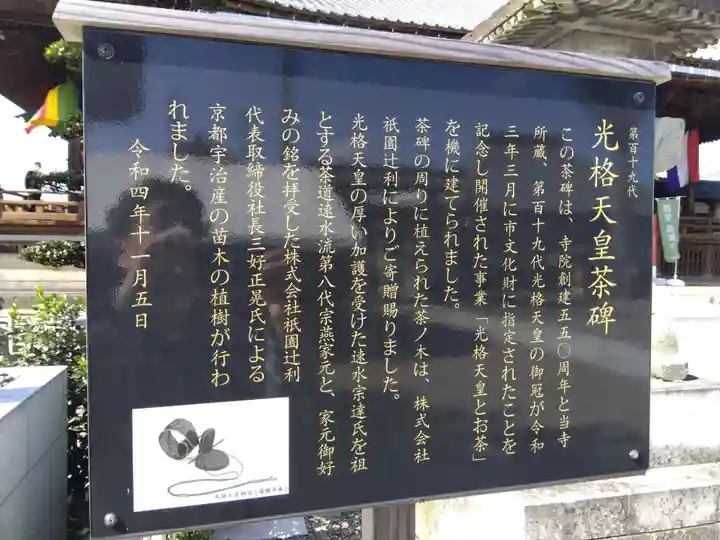 第百十九代
光格天皇茶碑
この茶碑は、寺院創建五五〇周年と当寺
所蔵、第百十九代光格天皇の御冠が令和
三年三月に市文化財に指定されたことを
記念し開催された事業「光格天皇とお茶」
を機に建てられました。
茶碑の周りに植えられた茶ノ木は、株式会社
祇園辻利によりご寄贈賜りました。
光格天皇の厚い加護を受けた速水宗達氏を祖
とする茶道速水流第八代宗燕家元と、家元御好
みの銘を拝受した株式会社祇園辻利
代表取締役社長三好正晃氏による
京都宇治産の苗木の植樹が行わ
れました。
令和四年十一月五日